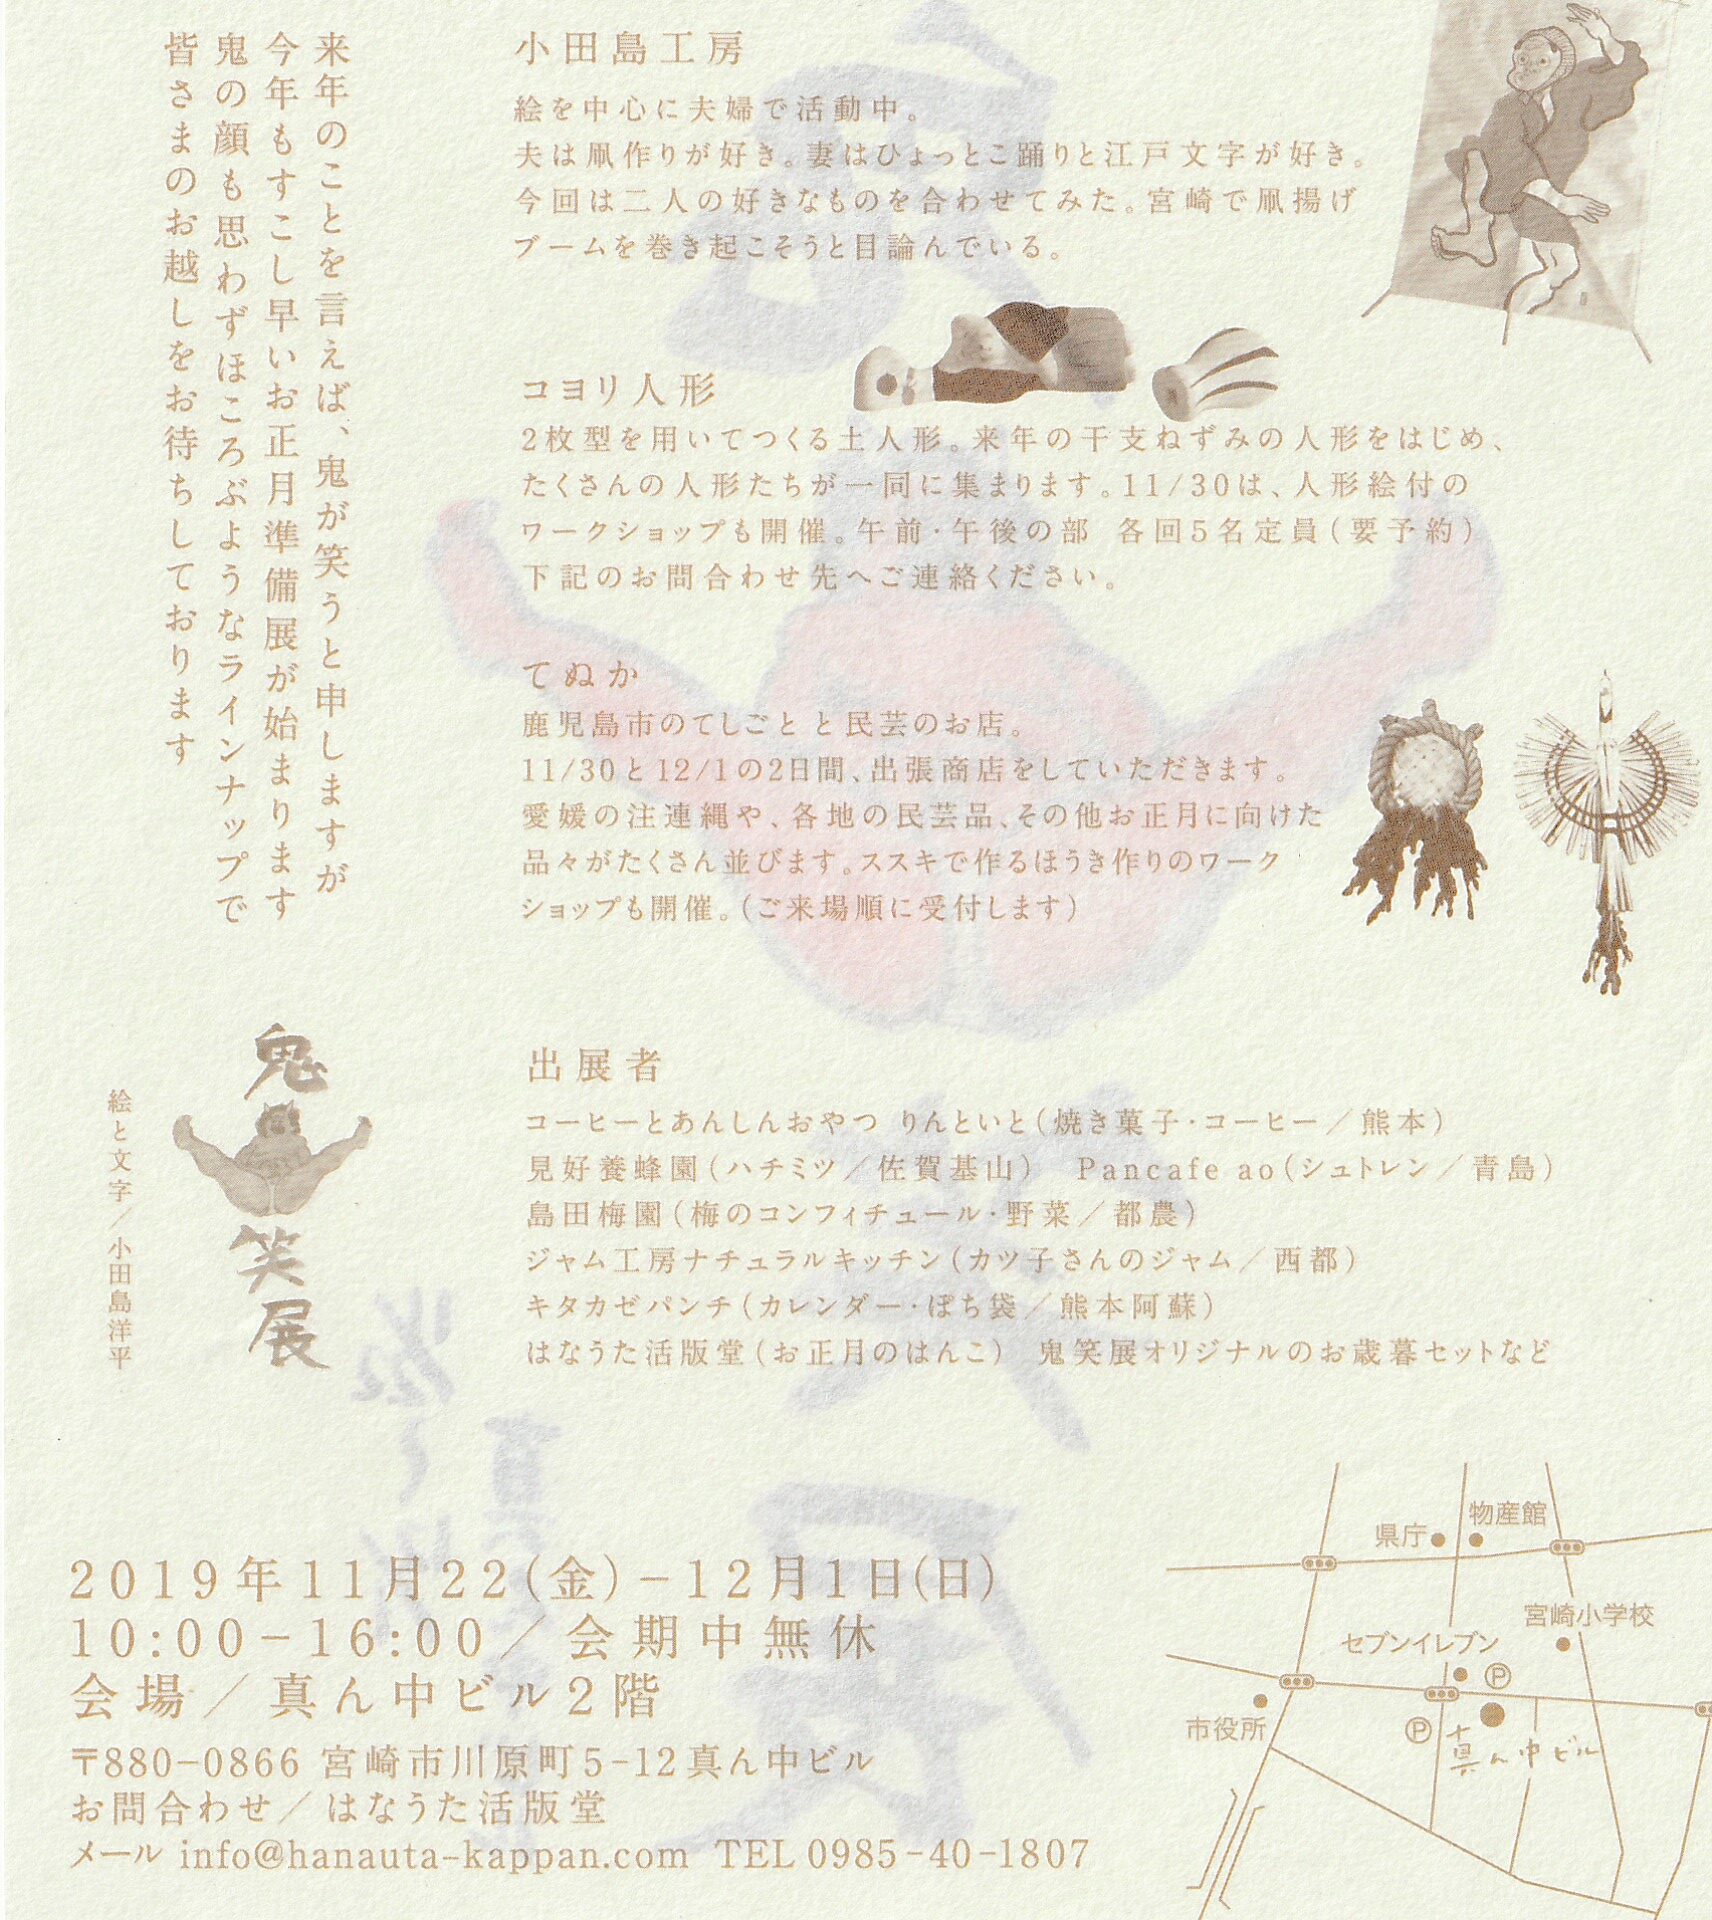 来年のことを言えば、鬼が笑うと申しますが
今年もすこし早いお正月準備展が始まります
鬼の顔も思わずほころぶようなラインナップで
皆さまのお越しをお待ちしております
小田島工房
絵を中心に夫婦で活動中。
夫は凧作りが好き。妻はひょっとこ踊りと江戸文字が好き。
今回は二人の好きなものを合わせてみた。宮崎で凧揚げ
ブームを巻き起こそうと目論んでいる。
コヨリ人形
2枚型を用いてつくる土人形。来年の干支ねずみの人形をはじめ、
たくさんの人形たちが一同に集まります。11/30は、人形絵付の
ワークショップも開催。午前・午後の部 各回5名定員(要予約)
下記のお問合わせ先へご連絡ください。
てぬか
鹿児島市のてしごと と民芸のお店。
11/30と12/1の2日間、出張商店をしていただきます。
愛媛の注連縄や、各地の民芸品、その他お正月に向けた
品々がたくさん並びます。ススキで作るほうき作りのワーク
ショップも開催。(ご来場順に受付します)
鬼
笑
展
絵と文字/小田島洋平
出展者
コーヒーとあんしんおやつ りんといと(焼き菓子・コーヒー/熊本)
見好養蜂園(ハチミツ/佐賀基山) Pancafe ao(シュトレン/青島)
島田梅園(梅のコンフィチュール・野菜/都農)
ジャム工房ナチュラルキッチン(カツ子さんのジャム/西都)
キタカゼパンチ(カレンダー・ぽち袋/熊本阿蘇)
はなうた活版堂(お正月のはんこ) 鬼笑展オリジナルのお歳暮セットなど
2019年11月22(金)-12月1日(日)
10:00-16:00/会期中無休
会場/真ん中ビル2階
〒880-0866 宮崎市川原町5-12真ん中ビル
お問合わせ/はなうた活版堂
メール info@hanauta-kappan.com TEL 0985-40-1807
県庁
物産館
宮崎小学校
セブンイレブン
P
市役所
P
真ん中ビル